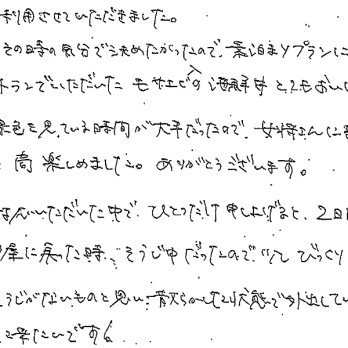 利用させていただきました。
その日の気分で決めたかったので、素泊まりプランに
トランでいただいた モサエビの海鮮丼 とてもおい
景色を見ている時間が大半だったので、女将さんに
間 楽しめました。ありがとうございます。
いただいた中で、ひとつだけ申し上げると、2日
屋に戻った時、そうじ中だったので、少々びっくり
うじがないものと思い、散らかした状態で外出してい
来たいです